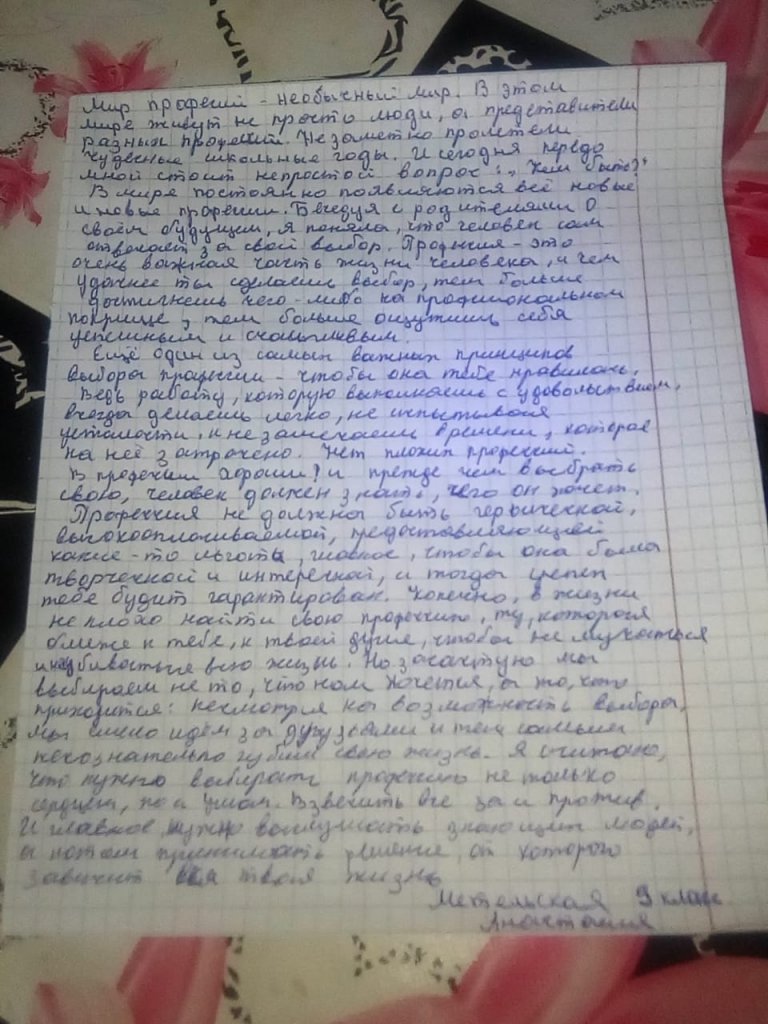 Мир профессий - необычный мир. В этом
мире живут не просто люди, а представители
разных профессий. Незаметно пролетели
чудесные школьные годы. И сегодня передо
мной стоит непростой вопрос: „Кем быть?"
В мире постоянно появляются всё новые
и новые профессии. Беседуя с родителями о
своём будущем, я поняла, что человек сам
отвечает за свой выбор. Профессия - это
очень важная часть жизни человека, и чем
удачнее ты сделаешь выбор, тем больше
достигнешь чего-либо на профессиональном
поприще, тем больше ощутишь себя
успешным и счастливым.
Ещё один из самых важных принципов
выбора профессии - чтобы она тебе нравилась.
Ведь работу, которую выполняешь с удовольствием,
всегда делаешь легко, не испытывая
усталости, и не замечаешь времени, которое
на неё затрачено. Нет плохих профессий.
В профессии и прежде чем выбрать
свою, человек должен знать, чего он хочет.
Профессия не должна быть героической,
высокооплачиваемой, предоставляющей
какие-то льготы, главное, чтобы она была
творческой и интересной, и тогда успех
тебе будит гарантирован. Конечно, в жизни
не плохо найти свою профессию, ту, которая
ближе к тебе, к твоей душе, чтобы не мучаться
всю жизнь. Но зачастую мы
выбираем не то, что нам хочется, а то, что
приходится: несмотря на возможность выбора,
мы идём за друзьями и тем самым
несознательно губим свою жизнь. Я считаю,
что нужно выбирать профессию не только
сердцем, но и умом. Взвесить все за и против.
И главное нужно выслушать знающих людей,
а потом принимать решение, от которого
зависит вся твоя жизнь
Метельская 9 класс
Анастасия